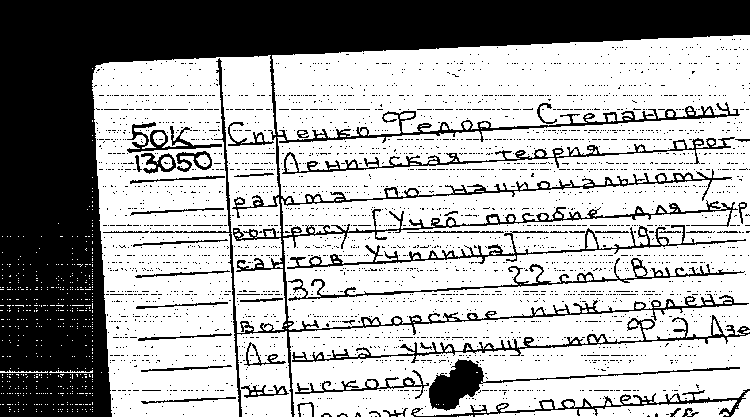 50К
13050
Синенко, Федор Степанович.
Ленинская теория и прог-
рамма по национальному
вопросу. [Учеб. пособие для кур
сантов Училища]. Л., 1967.
32 с. 22 см. (Высш.
воен.-морское инж. ордена
Ленина училище им. Ф. Э. Дзе
жинского)
Продаже не подлежит